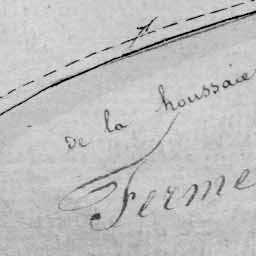 de la houssaie
Ferme